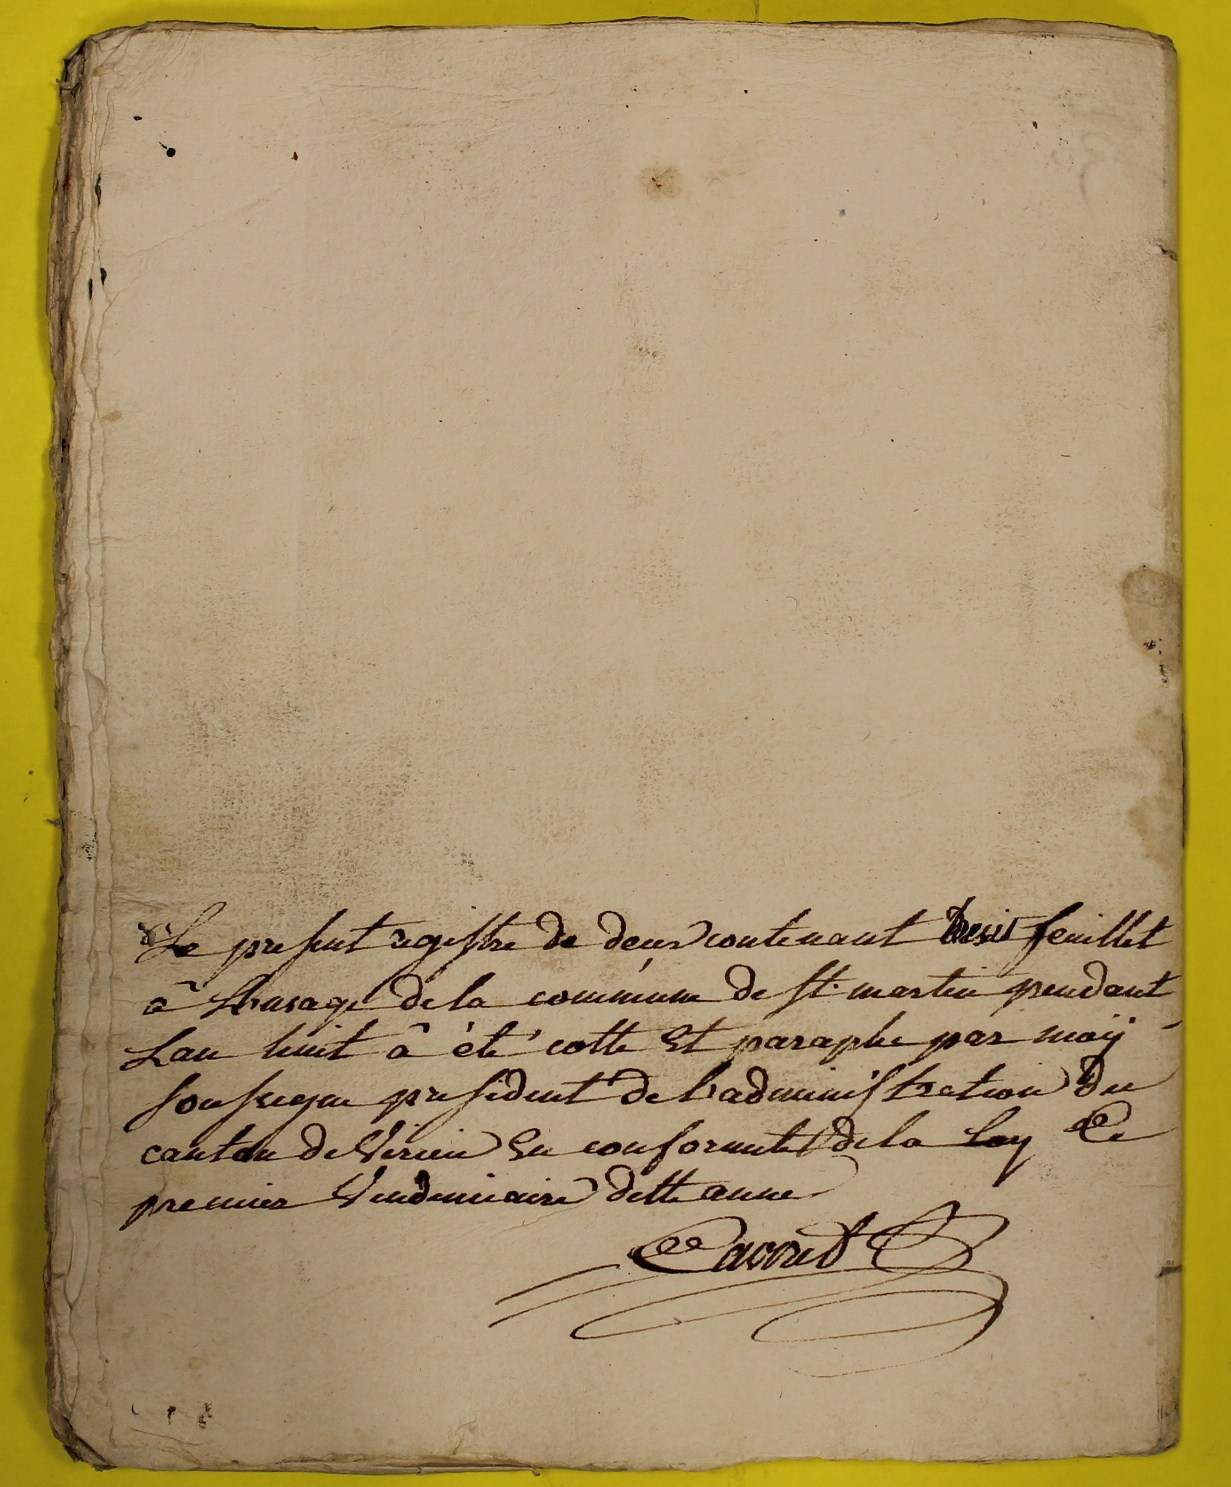 Le present registre de deux contenant feuillet
â L'usage de la commune de St. martin pendant
Lan huit â èté cotte Et paraphe par moÿ
soussigne president de l'administration du
canton de En conformité de la Loy Ce
premier Vendemiaire ditte anne